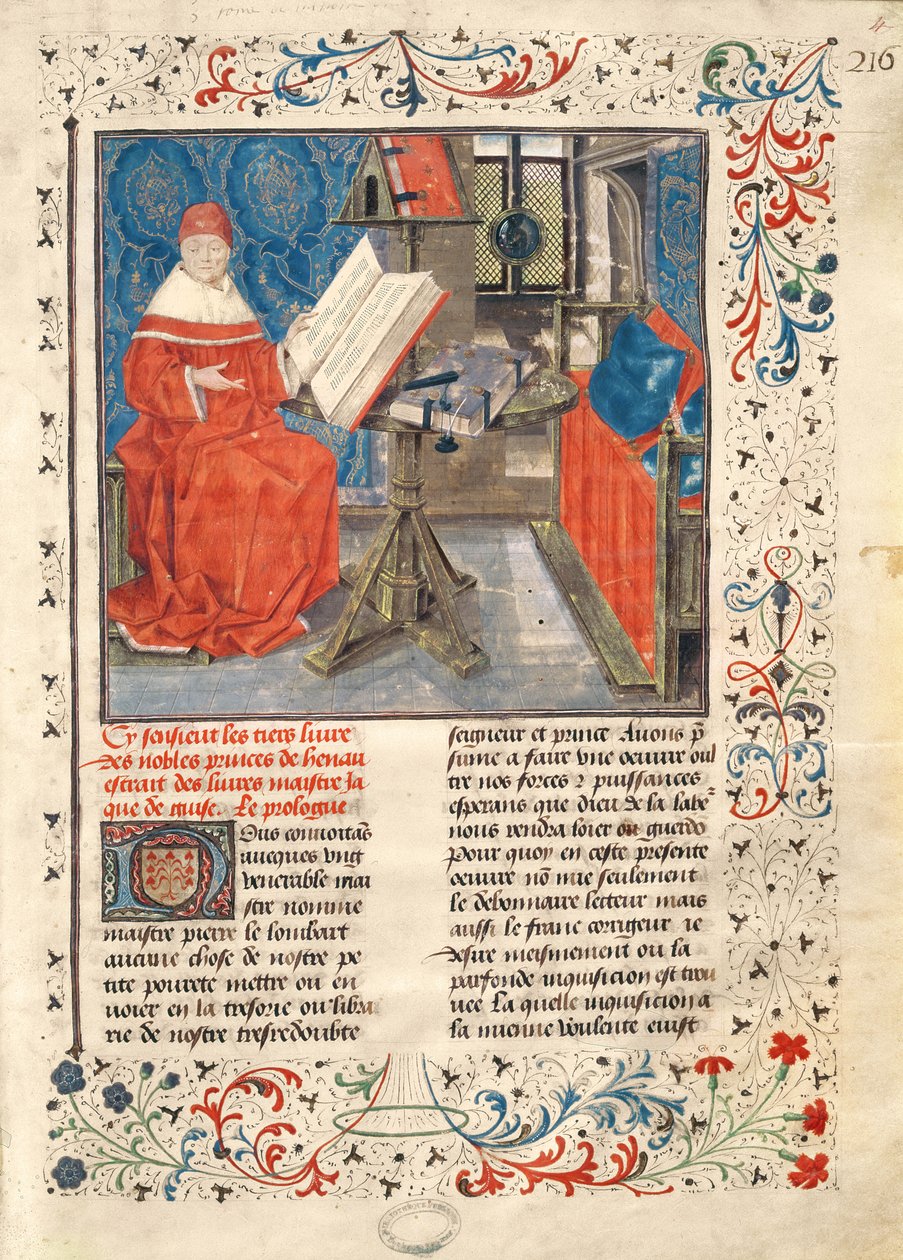 216
Cy sensient les tiers livre
des nobles princes de henau
estrait des livres maistre Ja
que de guise. Le prologue
Nous confortas
avecques ung
venerable mai
stre nomme
maistre pierre le lombart
aucune chose de nostre po
vrete pourete mettre ou en
voier en la tresorie ou libra
rie de nostre tresredoubte
seigneur et prince Avons p̄
sume a faire vne oeuure oul
tre nos forces et puissances
esperans que dieu de la labeͬ
nous rendra loier ou guerdō
Pour quoy en ceste presente
oeuure nō mie seulement
le debonnaire lecteur mais
aussi le franc corrigeur ie
desire meismement ou la
parfonde inquisicion est trou
uee La quelle inquisicion a
la mienne voulente euist